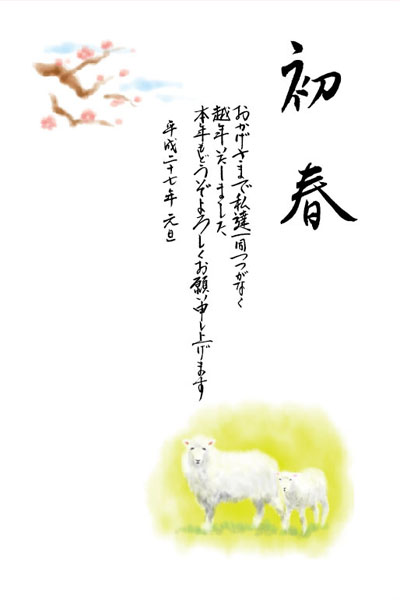 初春
おかげさまで私達一同つつがなく
越年いたしました
本年もどうぞよろしくお願い申し上げます
平成二十七年 元旦